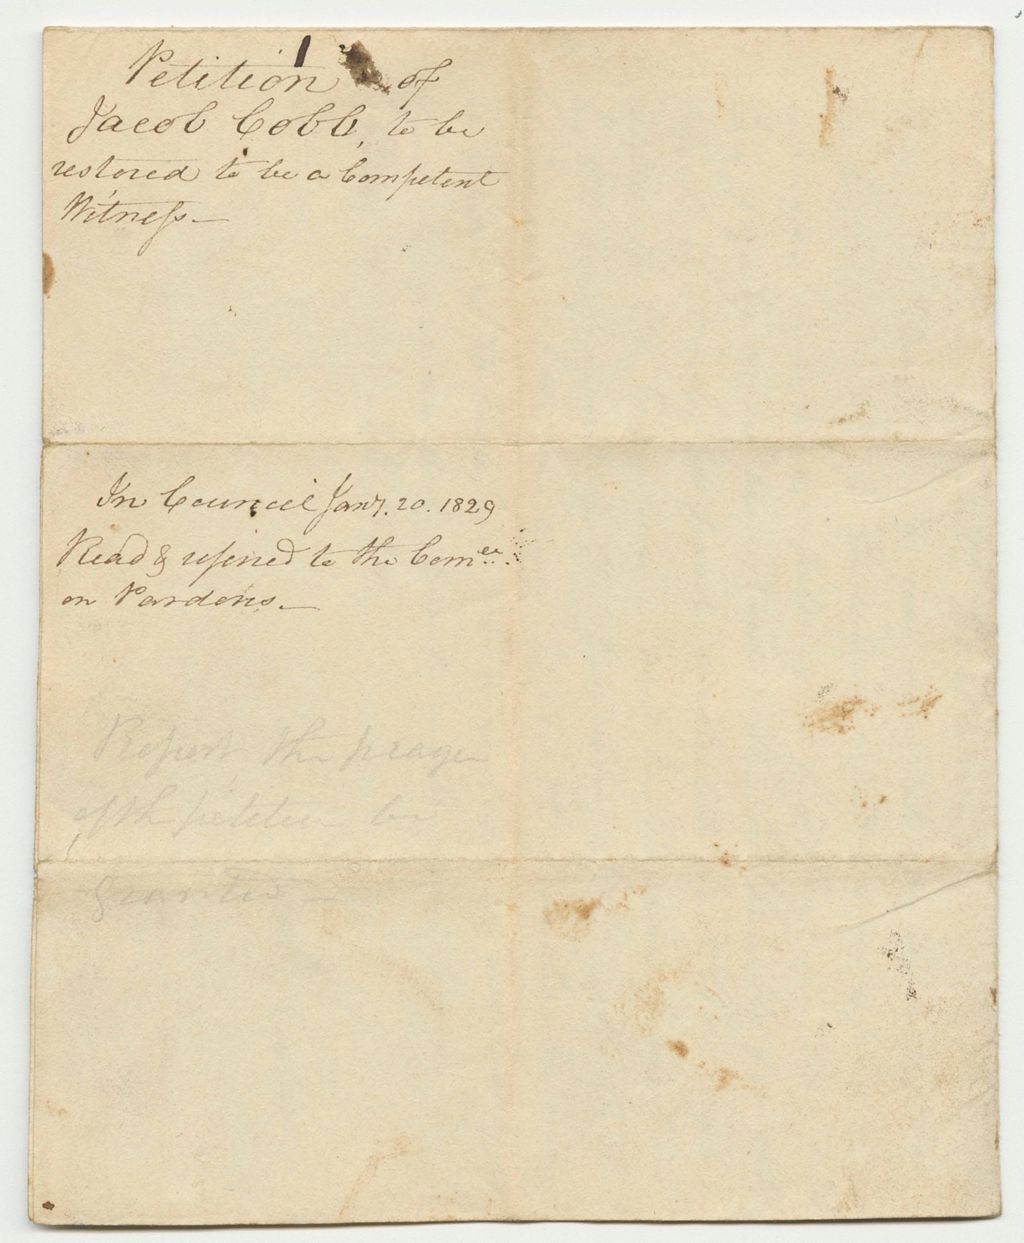 Petition of
Jacob Cobb, to be
restored to be a Competent
Witness.—
In Council Jany. 20. 1829
Read & referred to the Comee.
on Pardons.—
Report the prayer
of th petition be
granted —